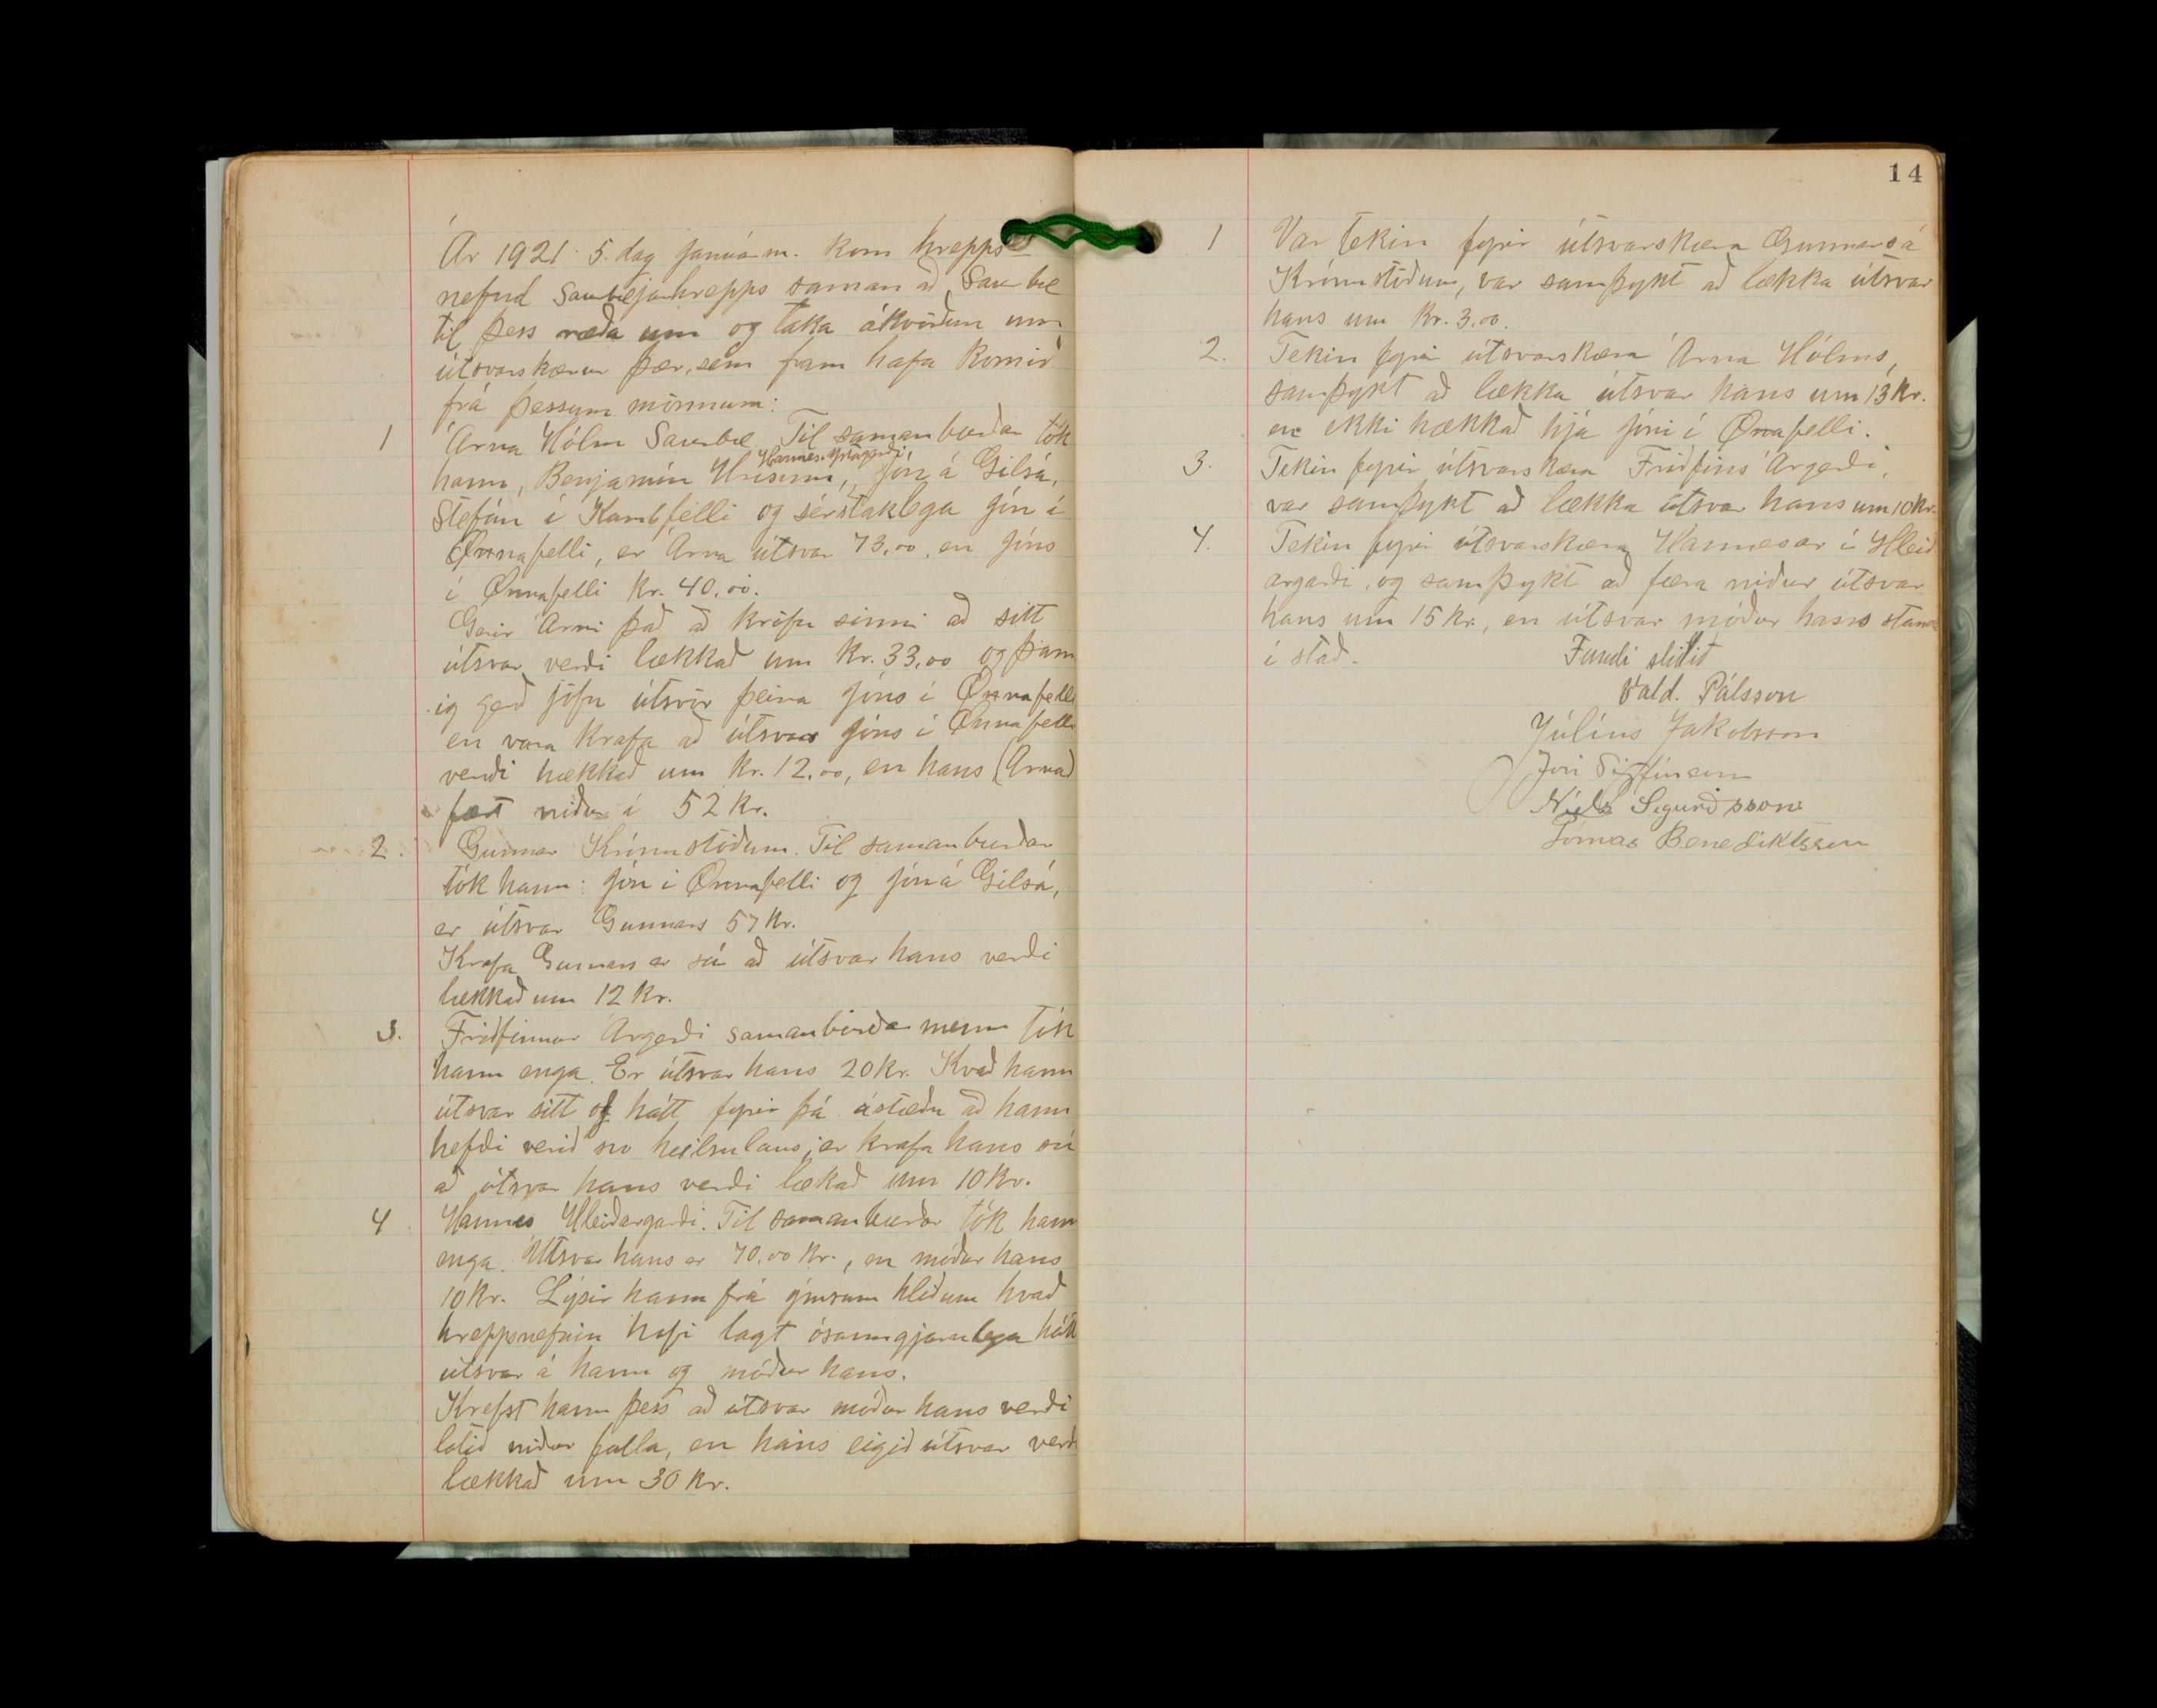 Ár 1921. 5. dag janúarm. kom hrepps-
nefnd Saurbæjarhrepps saman að Saurbæ
til þess ræða um og taka ákvörðun um
útsvarskærur þær, sem fram hafa komið
frá þessum mönnum:
1 Árna Hólm Saurbæ. Til samanburðar tók
hann, Benjamín Hrísum, Jón á Gilsá,
Stefán í Kambfelli og sérstaklega Jón í
Örnafelli, er Árna útsvar 73,00, en Jóns
í Örnafelli kr. 40,00.
Gerir Árni það að kröfu sinni að sitt
útsvar verði lækkað um kr. 33,00 og þann
ig gerð jöfn útsvör þeirra Jóns í Örnafelli
en vara krafa að útsvar Jóns í Örnafelli
verði hækkað um kr. 12,00, en hans (Árna)
fært niður í 52 kr.
2. Gunnar Krónustöðum. Til samanburðar
tók hann: Jón í Örnafelli og Jón á Gilsá,
er útsvar Gunnars 57 kr.
Krafa Gunnars er sú að útsvar hans verði
lækkað um 12 kr.
3. Friðfinnur Árgerði samanburða menn tók
hann enga. Er útsvar hans 20 kr. Kvað hann
útsvar sitt of hátt fyrir þá ástæðu að hann
hefði verið svo heilsulaus, er krafa hans sú
að útsvar hans verði lækað um 10 kr.
4 Hannes Hleiðargarði. Til samanburðar tók hann
enga. Útsvar hans er 70,00 kr., en móður hans
10 kr. Lýsir hann frá ýmsum hliðum hvað
hreppsnefnin hafi lagt ósanngjarnlega hátt
útsvar á hann og móður hans.
Krefst hann þess að útsvar móður hans verði
látið niður falla, en hans eigið útsvar verði
lækkað um 30 kr.
14
1 Var tekin fyrir útsvarskæra Gunnars á
Krónustöðum, var samþykt að lækka útsvar
hans um kr. 3,00.
2. Tekin fyrir útsvarskæra Árna Hólms,
samþykt að lækka útsvar hans um 13 kr.
en ekki hækkað hjá Jóni í Örnafelli.
3. Tekin fyrir útsvarskæra Friðfins Árgerði,
var samþykt að lækka útsvar hans um 10 kr.
4. Tekin fyrir útsvarskæra Hannesar í Hleið
argarði, og samþykt að færa niður útsvar
hans um 15 kr., en útsvar móður hans standi
í stað.
Fundi slitið
Vald. Pálsson
Júlíus Jakobsson
Jón Sigfússon
Níels Sigurðsson
Tómas Benediktsson